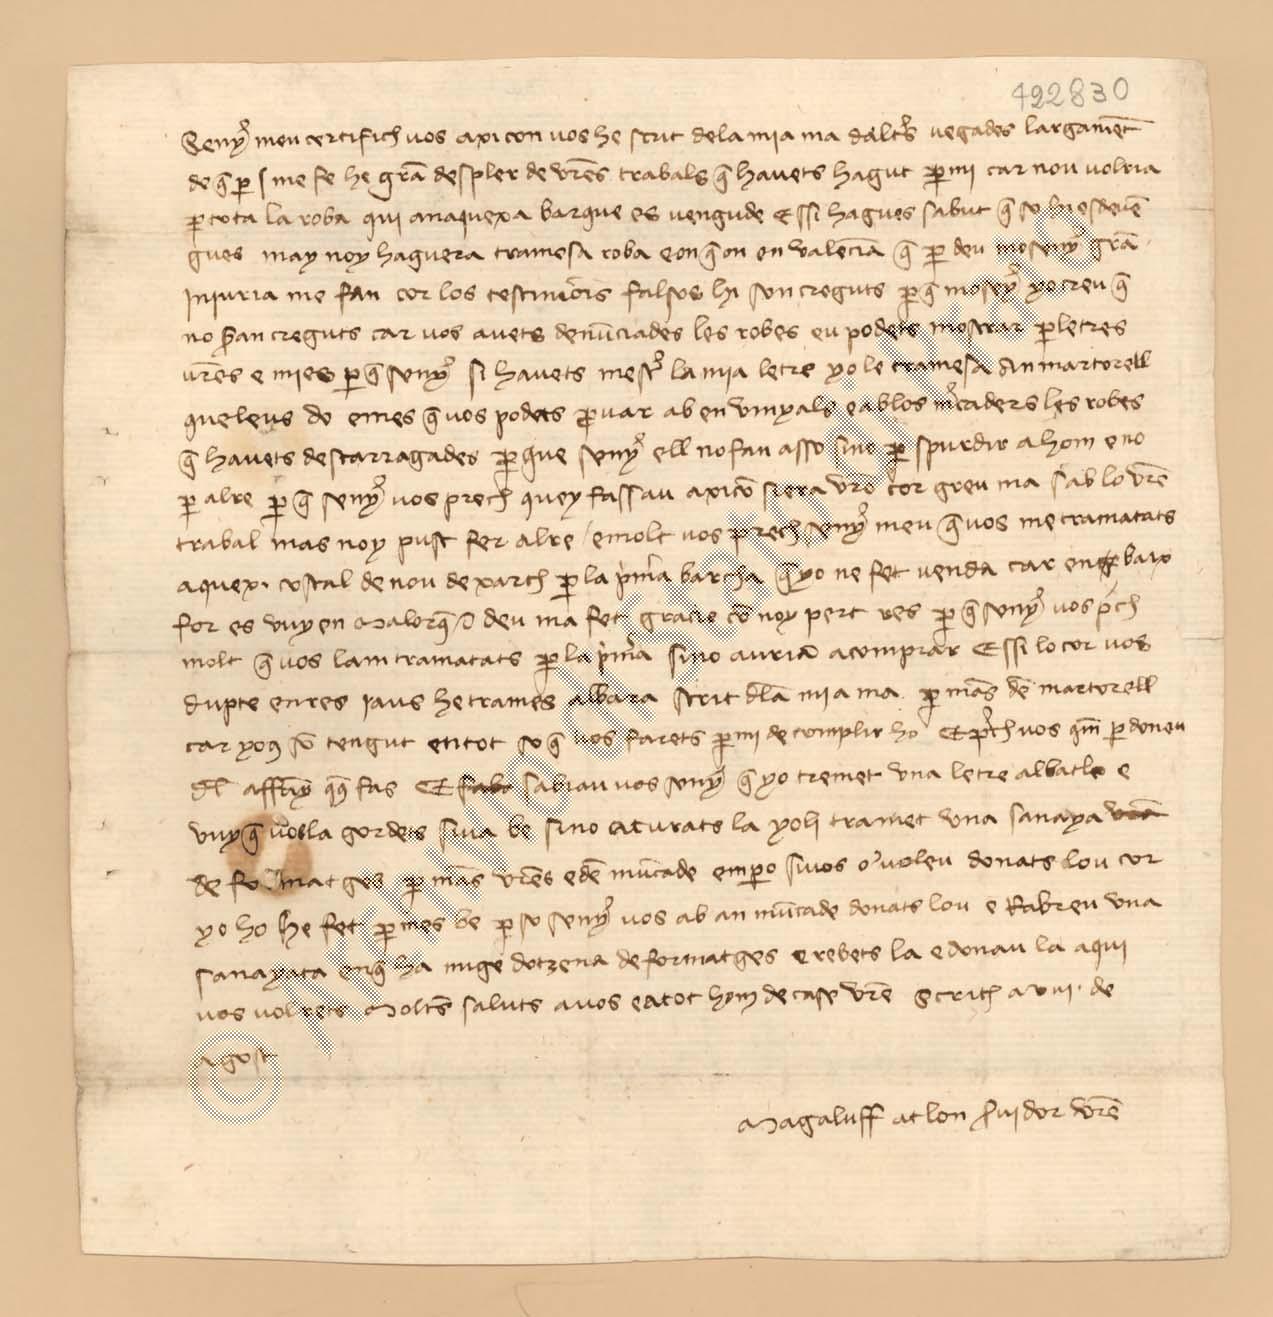 492830
Seny̅ meu certifich vos axi con vos he scrit de la mia ma daltrs vegades largament̅
de q̅ per ma fe he gra̅ despler de vr̅es trabals q̅ havets hagut p̱ mi car nou volria
p̱ tota la roba qui anaquexa barque es vengude E si hagues sabut q̅ so sen esdeve̅
gues may noy haguera tramesa roba e on q̅ on en valencia q̅ p̱ deu mo seny̅ gra̅
iniuria me fan cor los testimo̅is falsos hi son creguts p̱ q̅ mo seny̅ yo creu q̅
no s̱an creguts car vos avets denu̅ciades les robes eu podets mostrar p̱ letres
vr̅es e mies p̱ q̅ seny̅ si havets mest̅ la mia letre yo le tramesa An martorell
que leus do e mes q̅ vos podets p̱var ab en vinyals e ab los m̅caders les robes
q̅ havets descarragades p̱ que seny̅ ell no fan asso sino p̱ spurdir a hom e no
p̱ alre p̱ q̅ seny̅ vos prech quey fassau axi co̅ si era vr̅o cor greu ma sab lo vr̅e
trabal mas noy pusc fer alre / e molt vos prech seny̅ meu q̅ vos me tramatats
aquex costal de nou dexarch p̱ la p̍m̅a barcha q̅ yo ne fet venda car en baix
for es vuy en Malorq̅s deu ma fet gracie co̅ noy pert res p̱ q̅ seny̅ vos p̍ch
molt q̅ vos lam tramatats p̱ la p̍m̅a sino auria a comprar E si lo cor vos
dupte en res iaus he trames albara scrit dla̅ mia ma p̱ ma̅s de̅ martorell
car yo so̅ tengut en tot so q̅ vos farets p̱ mi de complir ho E p̍ch vos qm̅ perdoneu
dl̅ affany q̅us fas E sabiau vos seny̅ q̅ yo tremet una letre al batle e
vuy q̅ vos la gordets siua be sino caturats la yoli tramet una sanaya
de formatges p̱ ma̅s vr̅es e de̅ mu̅cade emp̱o si uos o voleu donats lou cor
yo ho he fet p̱ mes be p̱ so seny̅ vos ab an mu̅cade donats lou e Rabreu una
sanayata en q̅ ha mige dotzena de formatges e rebets la e donau la aqui
vos volrets Molts̅ saluts a vos e a tot hom de case vr̅e Scrita a viii de
agost
Magaluff atlon s̱uidor vr̅e